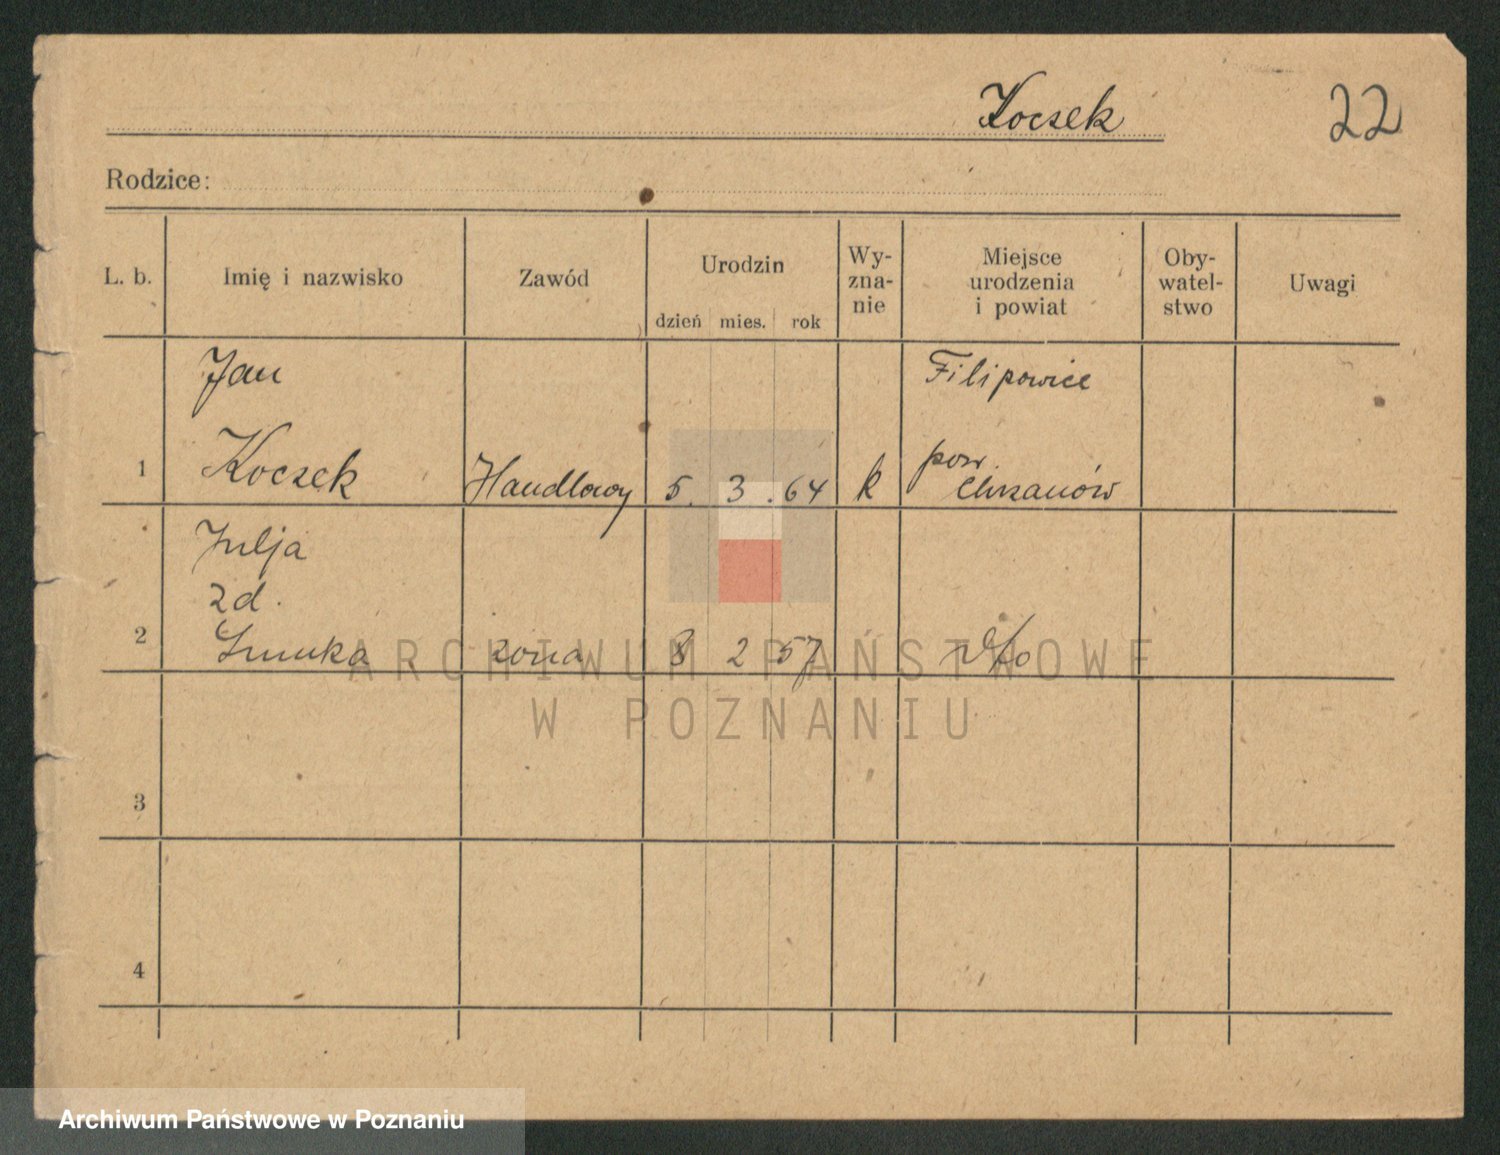 Kocsek
22
Rodzice:
L. b.
Imię i nazwisko
Zawód
Urodzin
dzień mies. rok
Wy-
zna-
nie
Miejsce
urodzenia
i powiat
Oby-
watel-
stwo
Uwagi
Jan
Filipowice
1
Koczek
Handlowy
5. 3. 64
k
pow.
Chrzanów
Julja
zd.
2
żona
8 2 57
3
4
ARCHIWUM PAŃSTWOWE
W POZNANIU
Archiwum Państwowe w Poznaniu